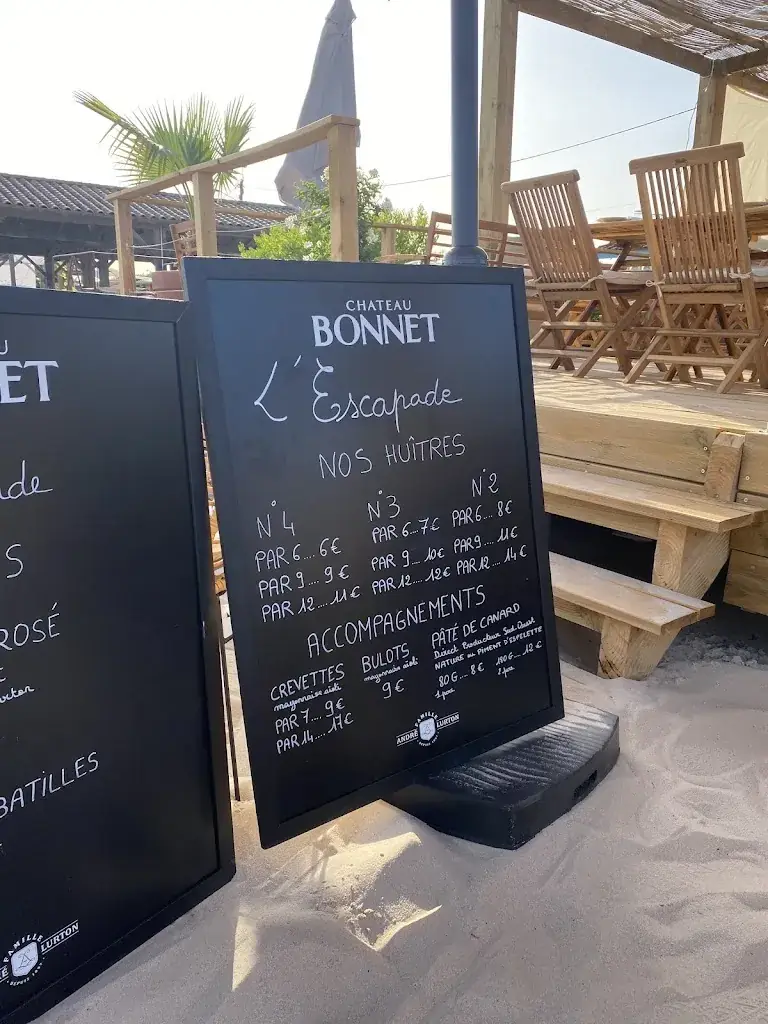 U
ET
de
S
ROSÉ
BATILLES
FAMILLE
LURTON
DEPUIS 1897
CHATEAU
BONNET
L'Escapade
NOS HUÎTRES
N°4 N°3 N°2
PAR 6...6€ PAR 6...7€ PAR 6...8€
PAR 9....9€ PAR 9...10€ PAR 9....11€
PAR 12....11€ PAR 12....12€ PAR 12....14€
ACCOMPAGNEMENTS
CREVETTES
mayonnaise aioli
PAR 7....9€
PAR 14....17€
BULOTS
mayonnaise aioli
9€
PÂTÉ DE CANARD
Direct Producteur Sud-Ouest
NATURE ou PIMENT D'ESPELETTE
80G...8€ 180G....12€
1 pers 2 pers
FAMILLE
ANDRÉ LURTON